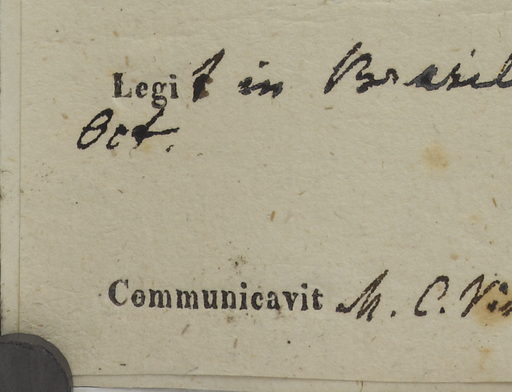 Legit in Brasil
Oct.
Communicavit M. C.